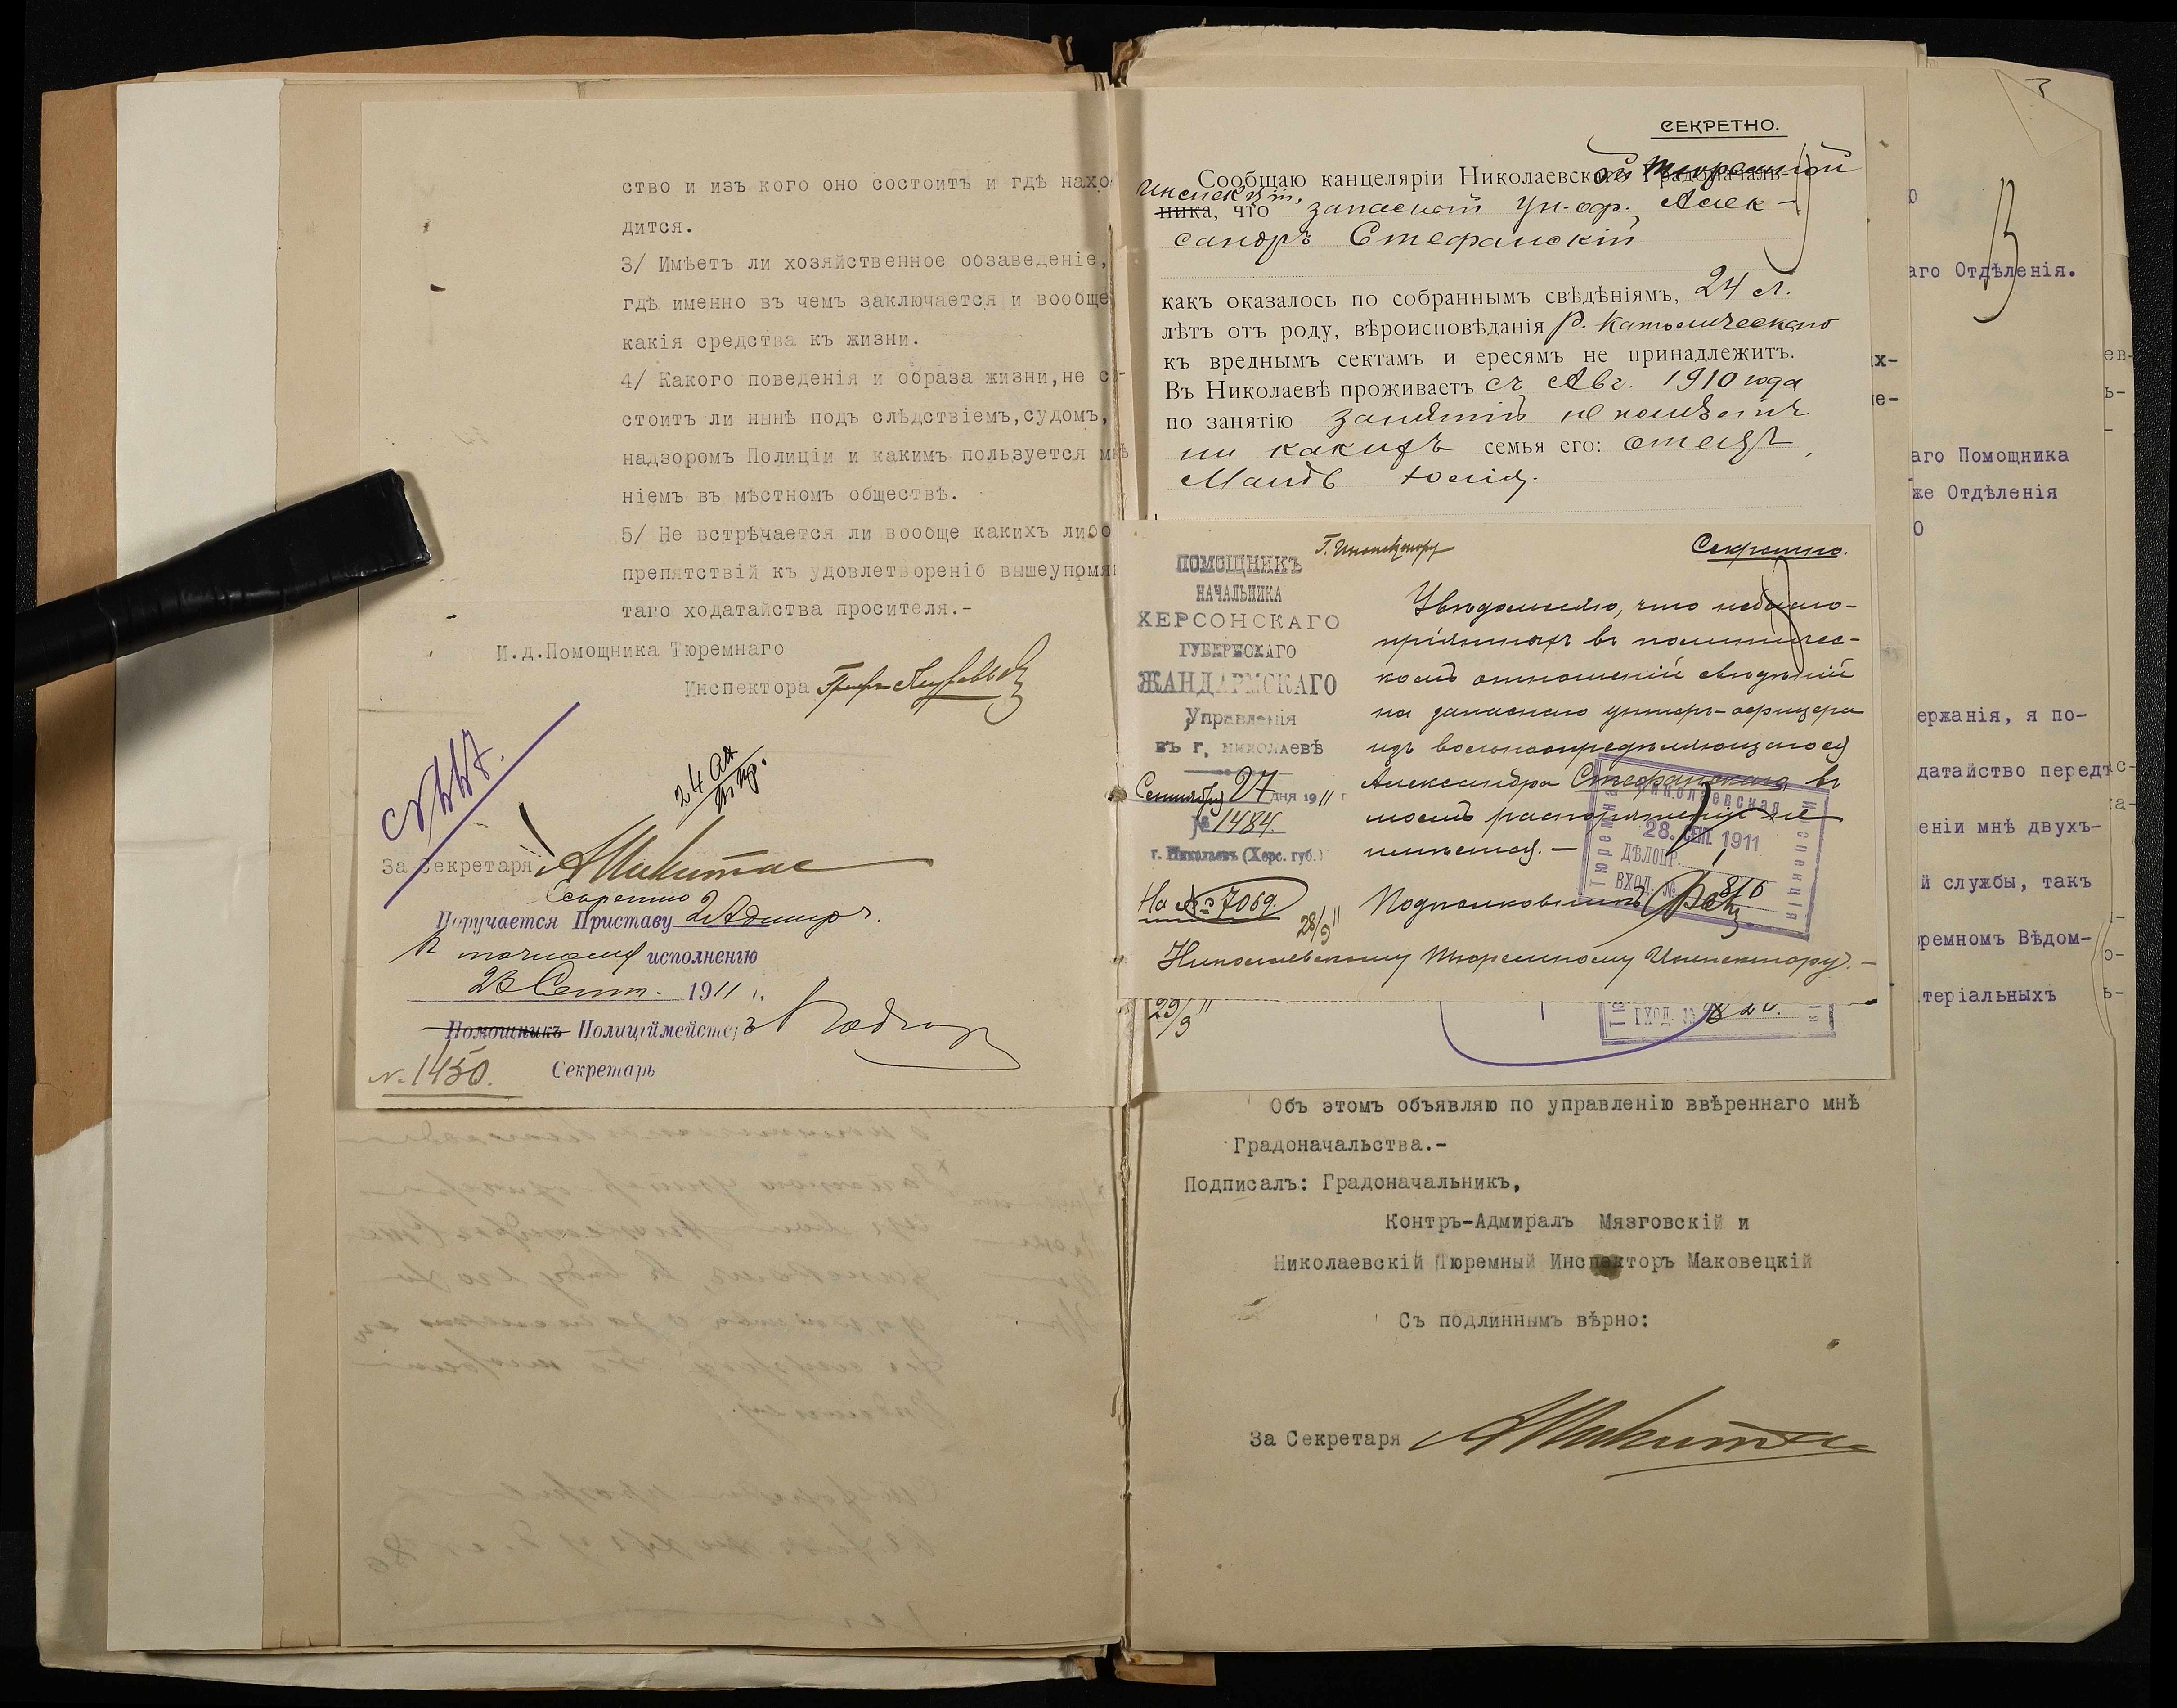 ство и изъ кого оно состоитъ и гдѣ нахо
дится.
3/ Имѣетъ ли хозяйственное обзаведеніе,
гдѣ именно въ чемъ заключается и вообще
какія средства къ жизни.
4/ Какого поведенія и образа жизни,не со-
стоитъ ли нынѣ подъ слѣдствіемъ,судомъ,
надзоромъ Полиціи и какимъ пользуется мнѣ
ніемъ въ мѣстномъ обществѣ.
5/ Не встрѣчается ли вообще какихъ либо
препятствій къ удовлетвореніб вышеупомя
таго ходатайства просителя.-
И.д.Помощника Тюремнаго
Инспектора
За Секретаря
Секретно
Поручается Приставу 2 Адмир ч.
къ точному исполненію
23 Сент. 1911 г.
Помощникъ Полиціймейстеръ
N. 1450.
Секретарь
СЕКРЕТНО.
Сообщаю канцеляріи Николаевской Тюремной
Инспекціи, что запасный ун-оф. Алек-
сандръ Стефанскій
какъ оказалось по собраннымъ свѣдѣніямъ, 24 л.
лѣтъ отъ роду, вѣроисповѣданія р. католическаго
къ вреднымъ сектамъ и ересямъ не принадлежитъ.
Въ Николаевѣ проживаетъ съ Авг. 1910 года
по занятію занятій не имѣетъ
ни какихъ семья его: отецъ,
Мать Юлія.
Г. Инспектору
Секретно.
ПОМОЩНИКЪ
НАЧАЛЬНИКА
ХЕРСОНСКАГО
ГУБЕРНСКАГО
ЖАНДАРМСКАГО
Управленія
въ г. НИКОЛАЕВѢ
Сентября 27 дня 1911 г
№ 1484.
г. Николаевъ (Херс. губ.)
На № 7069.
28/9 11
Увѣдомляю, что неблаго-
пріятныхъ въ политичес-
комъ отношеніи свѣдѣній
на запаснаго унтеръ-офицера
изъ вольноопредѣляющагося
Александра Стефанскаго въ
моемъ распоряженіи не
имѣется.-
Подполковникъ
Николаевскому Тюремному Инспектору.-
Николаевская
Тюремная
Инспекція
28. СЕН. 1911
ДѢЛОПР. 1
ВХОД. № 816
29/9 11
ВХОД. № 820.
Объ этомъ объявляю по управленію ввѣреннаго мнѣ
Градоначальства.-
Подписалъ: Градоначальникъ,
Контръ-Адмиралъ Мязговскій и
Николаевскій Тюремный Инспекторъ Маковецкій
Съ подлиннымъ вѣрно:
За Секретаря
аго Отдѣленія.
аго Помощника
же Отдѣленія
ержанія, я по-
датайство передъ
еніи мнѣ двухъ-
й службы, такъ
ремномъ Вѣдом-
теріальныхъ